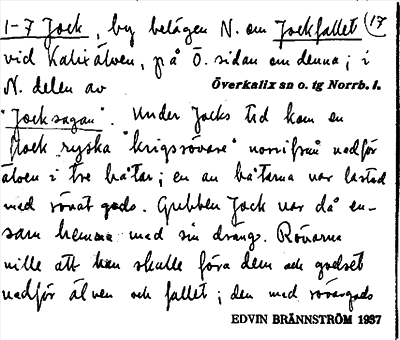 1-7 Jock, by belägen N. om Jockfallet (17
vid Kalixälven, på Ö. sidan om denna; i
N. delen av Överkalix sn o. tg Norrb. l.
"Jocksagan". Under Jocks tid kom en
flock ryska "krigsrövare" norrifrån nedför
älven i tre båtar; en av båtarna var lastad
med rövat gods. Gubben Jock var då en-
sam hemma med sin dräng. Rövarna
ville att han skulle föra dem och godset
nedför älven och fallet; den med rövargods
EDVIN BRÄNNSTRÖM 1937